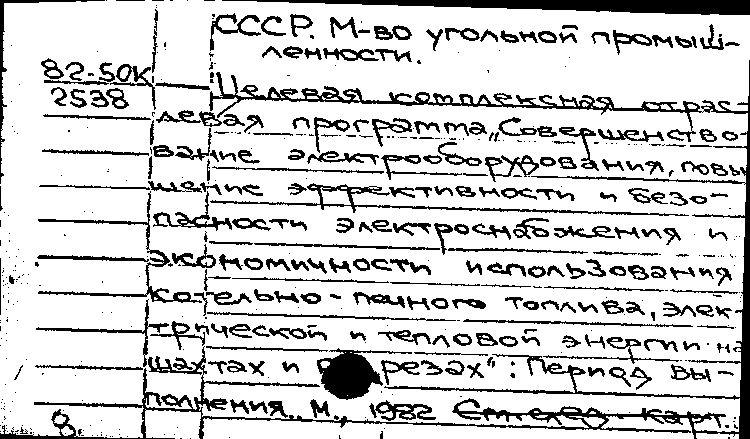 СССР. М-во угольной промыш-
ленности.
82-50К
2538
Целевая комплексная отрас-
левая программа „Совершенство-
вание электрооборудования, повы
шение эффективности и безо-
пасности электроснабжения и
экономичности использования
котельно-печного топлива, элек-
трической и тепловой энергии на
шахтах и резах": Период вы-
полнения. М., 1982 См.след. карт.
8